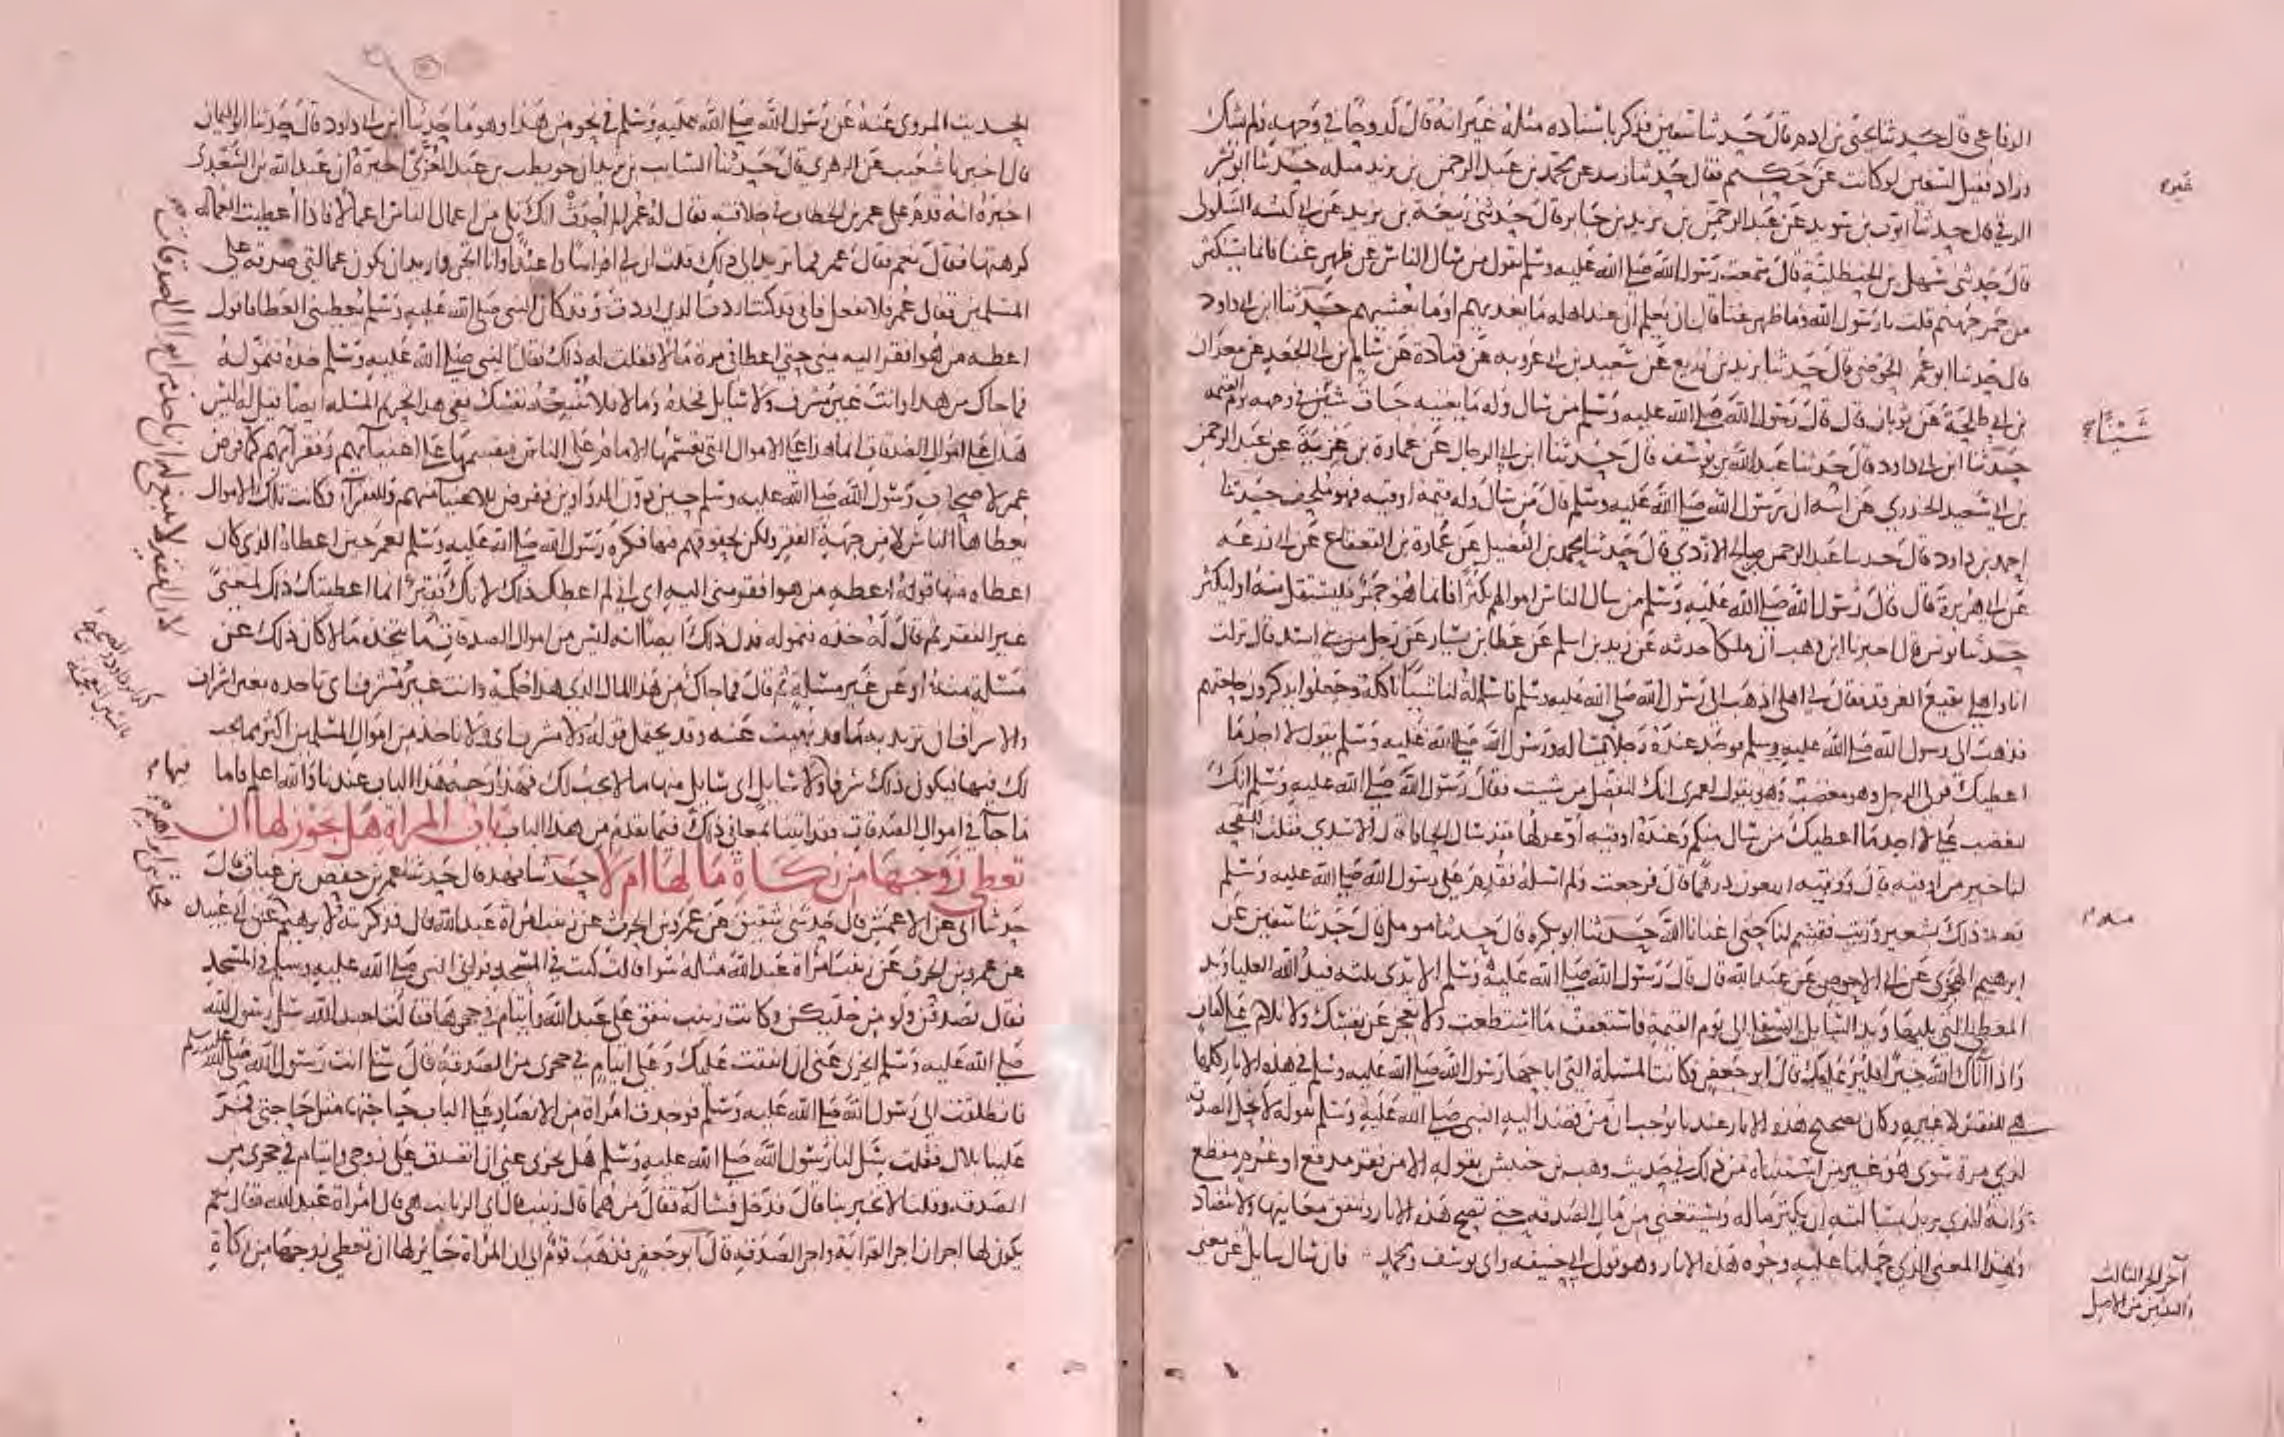 الرفاعي قال حدثنا يحيى بن ادم قال حدثنا سفين فذكر باسناده مثله غير انه قال كدوحا في وجهه ولم يشك
وزاد فقيل لسفين لو كانت عن حكيم فقال حدثنا زبيد عن محمد بن عبد الرحمن بن يزيد مثله حدثنا ابو بشر
الرقي قال حدثنا ايوب بن سويد عن عبد الرحمن بن يزيد بن جابر قال حدثني ربيعة بن يزيد عن ابي كبشه السلولي
قال حدثني سهل بن الحنظلية قال سمعت رسول الله صلى الله عليه وسلم يقول من سال الناس عن ظهر غنا فانما يستكثر
من جمر جهنم قلت يا رسول الله وما ظهر غنا قال ان يعلم ان عند اهله ما يغديهم او ما يعشيهم حدثنا ابن ابي داود
قال حدثنا ابو عمر الحوضي قال حدثنا يزيد بن زريع عن سعيد بن ابي عروبه عن قتادة عن سالم بن ابي الجعد عن معدان
بن ابي طلحة عن ثوبان قال قال رسول الله صلى الله عليه وسلم من سال وله ما يغنيه جات شين في وجهه يوم القيمه
حدثنا ابن ابي داود قال حدثنا عبد الله بن يوسف قال حدثنا ابن ابي الرجال عن عمارة بن غزية عن عبد الرحمن
بن ابي سعيد الخدري عن ابيه ان رسول الله صلى الله عليه وسلم قال من سال وله قيمة اوقيه فهو ملحف حدثنا
احمد بن داود قال حدثنا عبد الرحمن بن صالح الازدي قال حدثنا محمد بن الفضيل عن عمارة بن القعقاع عن ابي زرعه
عن ابي هريرة قال قال رسول الله صلى الله عليه وسلم من سال الناس اموالهم تكثرا فانما هو جمر فليستقل منه او ليكثر
حدثنا يونس قال اخبرنا ابن وهب ان ملكا حدثه عن زيد بن اسلم عن عطا بن يسار عن رجل من بني اسد قال نزلت
انا واهلي بقيع الغرقد فقال لي اهلي اذهب الى رسول الله صلى الله عليه وسلم فاسئله لنا شيئا ناكله وجعلوا يذكرون حاجتهم
فذهبت الى رسول الله صلى الله عليه وسلم فوجدت عنده رجلا يساله ورسول الله صلى الله عليه وسلم يقول لا اجد ما
اعطيك فولى الرجل وهو مغضب وهو يقول لعمري انك لتفضل من شيت فقال رسول الله صلى الله عليه وسلم انك
لتغضب علي لا اجد ما اعطيك من سال منكم وعنده اوقيه او عدلها فقد سال الحافا قال الاسدي فقلت للقحه
لنا خير من اوقيه قال والاوقيه اربعون درهما قال فرجعت ولم اسئله فقدم على رسول الله صلى الله عليه وسلم
بعد ذلك بشعير وزبيب فقسم لنا حتى اغنانا الله حدثنا ابو بكره قال حدثنا مومل قال حدثنا سفين عن
ابرهيم الهجري عن ابي الاحوص عن عبد الله قال قال رسول الله صلى الله عليه وسلم الايدي ثلثه فيد الله العليا ويد
المعطي التي يليها ويد السايل السفلى الى يوم القيمة فاستعفف ما استطعت ولا تعجز عن نفسك ولا تلام على كفاف
واذا آتاك الله خيرا فلير عليك قال ابو جعفر فكانت المسئلة التي اباحها رسول الله صلى الله عليه وسلم في هذه الاثار كلها
هي للفقر لا غيره وكان تصحيح هذه الاثار عندنا يوجب ان من قصد اليه النبي صلى الله عليه وسلم بقوله لا تحل الصدقه
لذي مرة سوى هو غير من استثناه من ذلك في حديث وهب بن خنبش بقوله الا من فقر مدقع او غرم مفظع
وانه الذي يريد بمسالته ان يكثر ماله ويستغني من مال الصدقه حتى تصح هذه الاثار وتتفق معانيها ولا تتضاد
وهذا المعنى الذي حملنا عليه وجوه هذه الاثار وهو قول ابي حنيفه وابي يوسف ومحمد فان سال سايل عن معنى
غيره
شيئا
آخر الجز الثالث
والعشرين من الاصل
الحديث المروي عنه عن رسول الله صلى الله عليه وسلم في نحو من هذا وهو ما حدثنا ابن ابي داود قال حدثنا ابو اليمان
قال اخبرنا شعيب عن الزهري قال حدثنا السايب بن يزيد ان حويطب بن عبد العزى اخبره ان عبد الله بن السعدي
اخبره انه قدم على عمر بن الخطاب في خلافته فقال له عمر الم احدث انك تلي من اعمال الناس اعمالا فاذا اعطيت العماله
كرهتها فقال نعم فقال عمر فما تريد الى ذلك قلت ان لي افراسا واعبدا وانا اتجر واريد ان يكون عمالتي صدقة على
المسلمين فقال عمر فلا تفعل فاني قد كنت اردت الذي اردت وقد كان النبي صلى الله عليه وسلم يعطيني العطا فاقول
اعطه من هو افقر اليه مني حتى اعطاني مرة مالا فقلت له ذلك فقال النبي صلى الله عليه وسلم خذه فتموله
فما جاك من هذا وانت غير مشرف ولا سايل فخذه وما لا فلا تتبعه نفسك ففي هذا تحريم المسئله ايضا قيل له ليس
هذا على اموال الصدقات انما هذا على الاموال التي يقسمها الامام على الناس فيقسمها على اغنيآيهم وفقرآيهم كما فرض
عمر لاصحاب رسول الله صلى الله عليه وسلم حين دون الدواوين ففرض للاغنيآ منهم وللفقرآ وكانت تلك الاموال
يعطاها الناس لا من جهة الفقر ولكن لحقوقهم فيها فكره رسول الله صلى الله عليه وسلم لعمر حين اعطاه الذي كان
اعطاه منها قوله اعطه من هو افقر مني اليه اي اني لم اعطك ذلك لانك فقير انما اعطيتك ذلك لمعنى
غير الفقر ثم قال له خذه فتموله فدل ذلك ايضا انه ليس من اموال الصدقات
مسئلة منه او عن غير مسئلة ثم قال فما جاك من هذا المال الذي هذا حكمه وانت غير مشرف اي تاخذه بغير اشراف
والاسراف ان تريد به ما قد نهيت عنه وقد يحتمل قوله ولا مشرف اي ولا تاخذ من اموال المسلمين اكثر مما يجب
لك فيها فيكون ذلك شرفا ولا سايل اي سايل منها ما لا يجب لك فهذا وجه هذا الباب عندنا والله اعلم فاما
ما جآ في اموال الصدقات فقد اتينا بمعاني ذلك فيما تقدم من هذا الباب باب المراة هل يجوز لها ان
تعطي زوجها من زكاة مالها ام لا حدثنا فهد قال حدثنا عمر بن حفص بن غياث قال
حدثنا ابي عن الاعمش قال حدثني شقيق عن عمرو بن الحرث عن زينب امراة عبد الله قال فذكرته لابرهيم عن ابي عبيدة
عن عمرو بن الحرث عن زينب امراة عبد الله مثله سوا قالت كنت في المسجد فراني النبي صلى الله عليه وسلم في المسجد
فقال تصدقن ولو من حليكن وكانت زينب تنفق على عبد الله وايتام في حجرها فقالت لعبد الله سل رسول الله
صلى الله عليه وسلم ايجزي عني ان انفقت عليك وعلى ايتام في حجري من الصدقة قال سلي انت رسول الله صلى الله عليه وسلم
فانطلقت الى رسول الله صلى الله عليه وسلم فوجدت امراة من الانصار على الباب حاجتها مثل حاجتي فمر
علينا بلال فقلت سل لنا رسول الله صلى الله عليه وسلم هل يجزي عني ان اتصدق على زوجي وايتام في حجري من
الصدقه وقلنا لا تخبر بنا قال فدخل فساله فقال من هما قال زينب قال اي الزيانب هي قال امراة عبد الله فقال نعم
يكون لها اجران اجر القرابة واجر الصدقة قال ابو جعفر فذهب قوم الى ان المراة جايز لها ان تعطي زوجها من زكاة